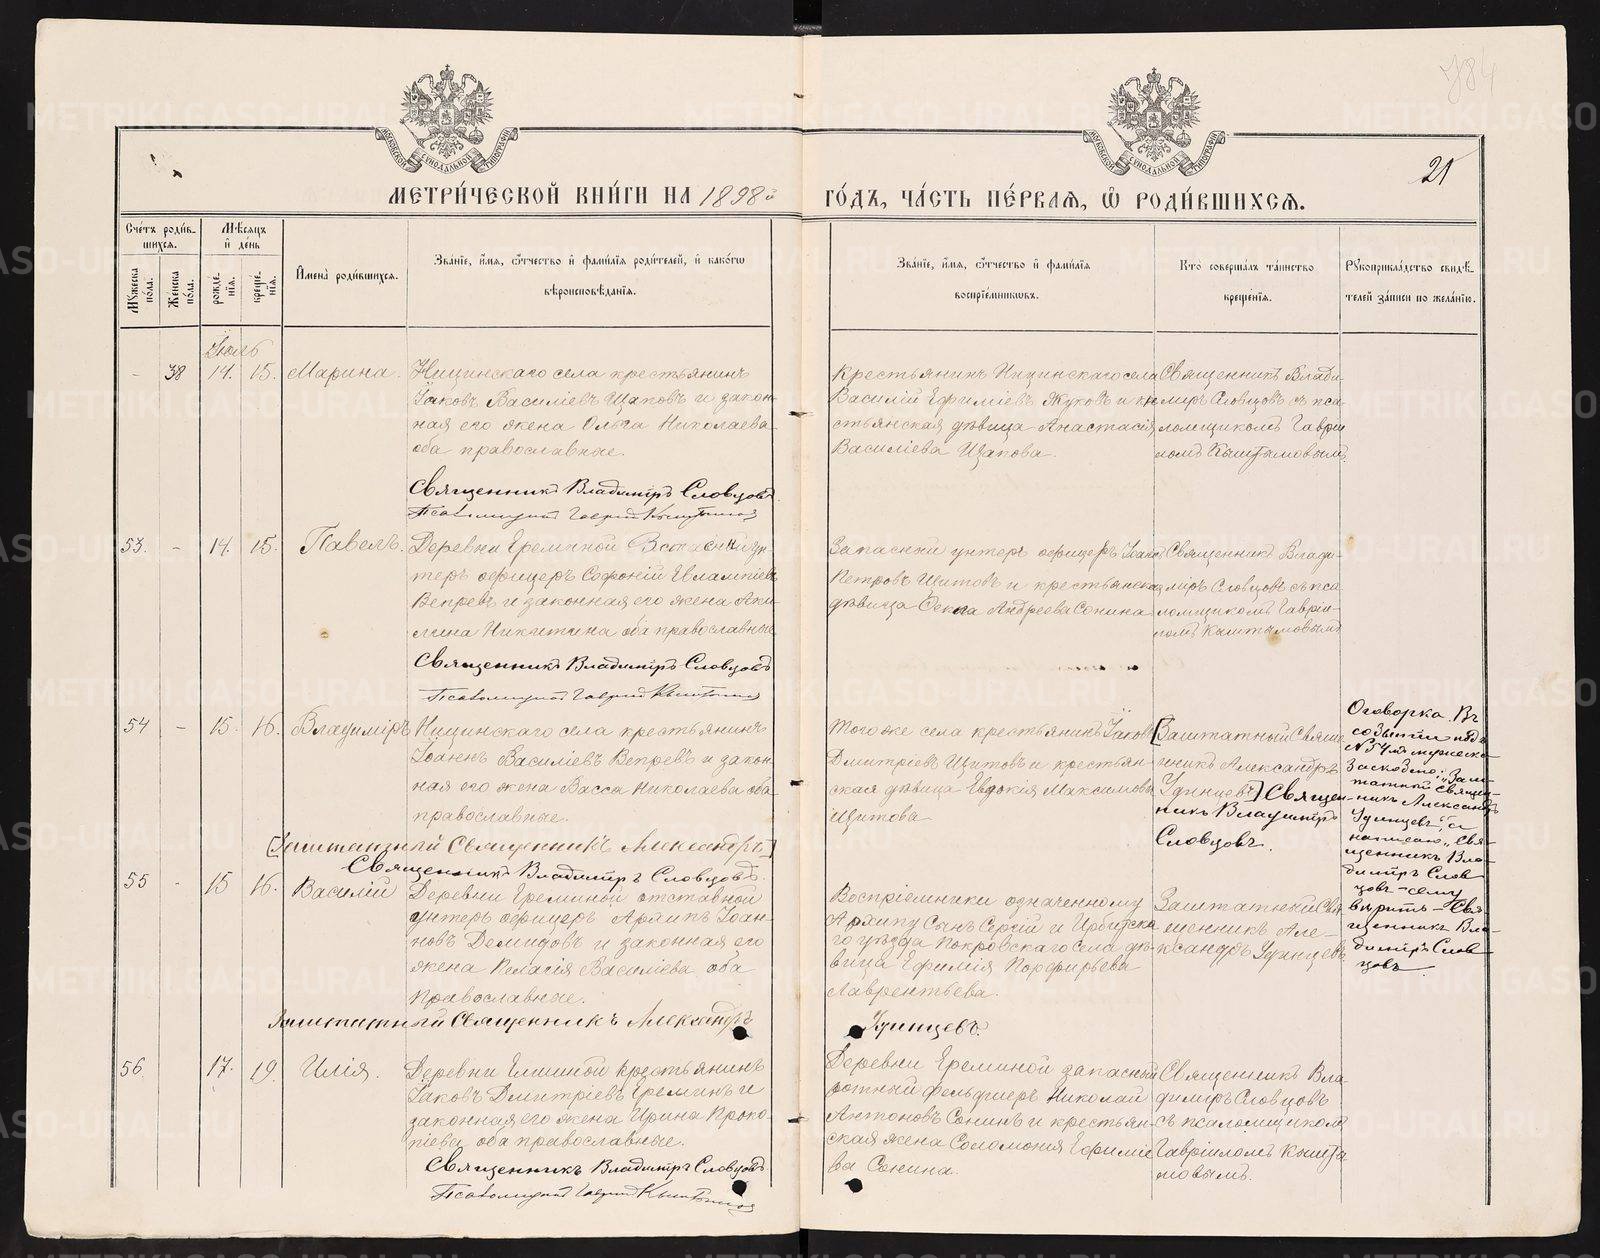 784
21
МЕТРИ́ЧЕСКОЙ КНИ́ГИ НА 1898й ГО́ДЪ, ЧА́СТЬ ПЕ́РВАЯ, Ѡ РОДИ́ВШИХСѦ.
Сче́тъ роди́в-
шихся.
Мѣ́сяцъ
и де́нь
Му́жеска по́ла.
Же́нска по́ла.
рожде́нія.
креще́нія.
Имена̀ роди́вшихся.
Зва́ніе, и́мя, о́тчество и фами́лія роди́телей, и како́гѡ
вѣроисповѣ́данія.
Зва́ніе, и́мя, о́тчество и фами́лія
воспріе́мниковъ.
Кто̀ соверша́лъ та́инство
креще́нія.
Рꙋкоприкла́дство свидѣ́-
телей за́писи по жела́нію.
Іюль
- 38 14. 15. Марина.
Ницинскаго села крестьянинъ
Іаковъ Василіевъ Щаповъ и закон-
ная его жена Ольга Николаева
оба православные.
Священникъ Владиміръ Словцовъ
Псаломщикъ Гавріилъ
Крестьянинъ Ницинскаго села
Василій Ефиміевъ Жуковъ и кре-
стьянская дѣвица Анастасія
Василіева Щапова.
Священникъ Влади-
міръ Словцовъ съ пса-
ломщикомъ Гаврiи-
ломъ Кыштымовымъ.
53. - 14. 15. Павелъ.
Деревни Ереминой Запасный ун-
теръ офицеръ Софоній Евлампіевъ
Вепревъ и законная его жена Аки-
лина Никитина оба православные
Священникъ Владиміръ Словцовъ
Псаломщикъ Гавріилъ
Запасный унтеръ офицеръ Іоаннъ
Петровъ Щитовъ и крестьянская
дѣвица Ѳекла Андреева Сонина
Священникъ Влади-
міръ Словцовъ съ пса
ломщикомъ Гаврiи-
ломъ Кыштымовымъ
54 - 15. 16. Владиміръ
Ницинскаго села крестьянинъ
Іоаннъ Василіевъ Вепревъ и закон-
ная его жена Васса Николаева оба
православные.
[Заштатный Священникъ Александръ]
Священникъ Владиміръ Словцовъ.
Того же села крестьянинъ Іаковъ
Дмитріевъ Щитовъ и крестьян-
ская дѣвица Евдокія Максимова
Щитова
[Заштатный Священ
никъ Александръ
Удинцевъ] Священ-
никъ Владиміръ
Словцовъ.
Оговорка. Въ
событіи подъ
№ 54 м
заскоблено: „Заш-
татный Священ-
никъ Александръ
Удинцевъ", а
написано „Свя-
щенникъ Вла-
димiръ Слов
цовъ - сему
вѣрить - Свя-
щенникъ Вла-
димiръ Слов
цовъ
55 - 15 16. Василій
Деревни Ереминой отставной
унтеръ офицеръ Архипъ Іоан-
новъ Демидовъ и законная его
жена Пелагія Василіева, оба
православные.
Заштатный Священникъ Александръ Удинцевъ.
Воспріемники означенному
Архипу Сынъ Сергій и Ирбитска
го уѣзда Покровскаго села дѣ-
вица Ефимія Порфирьева
Лаврентьева.
Заштатный Свя
щенникъ Але-
ксандръ Удинцевъ
56. 17. 19. Илія.
Деревни Ереминой крестьянинъ
Іаковъ Дмитріевъ Ереминъ и
законная его жена Ирина Проко-
піева, оба православные.
Священникъ Владиміръ Словцовъ
Псаломщикъ Гавріилъ
Деревни Ереминой запасный
ротный фельдшеръ Николай
Антоновъ Сонинъ и крестьян-
ская жена Соломонія Ефиміе
ва Сонина.
Священникъ Вла-
димiръ Словцовъ
съ псаломщикомъ
Гавріиломъ Кышты
мовымъ.
METRIKI.GASO-URAL.RU